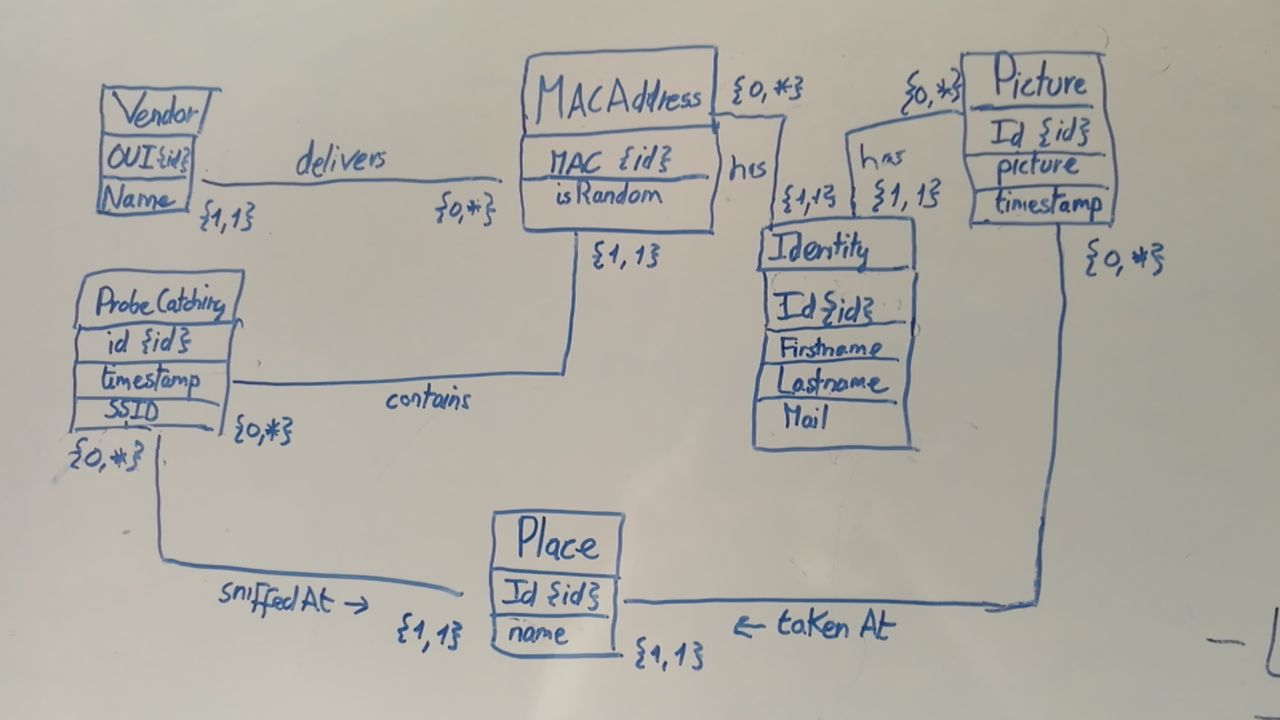 Vendor
OUI{id}
Name
{1,1}
delivers
{0,*}
MACAddress
MAC {id}
isRandom
{1,1}
{0,*}
has
{1,1}
{0,*}
has
{1,1}
Picture
Id {id}
picture
timestamp
{0,*}
Identity
Id {id}
Firstname
Lastname
Mail
ProbeCatching
id {id}
timestamp
SSID
{0,*}
{0,*}
contains
sniffedAt →
{1,1}
Place
Id {id}
name
{1,1}
← taken At